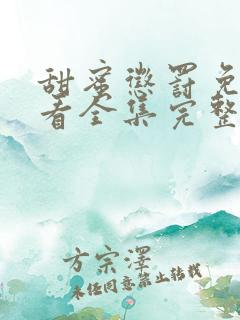 甜蜜惩罚免
看全集完整
方宗泽
未经同意禁止转载